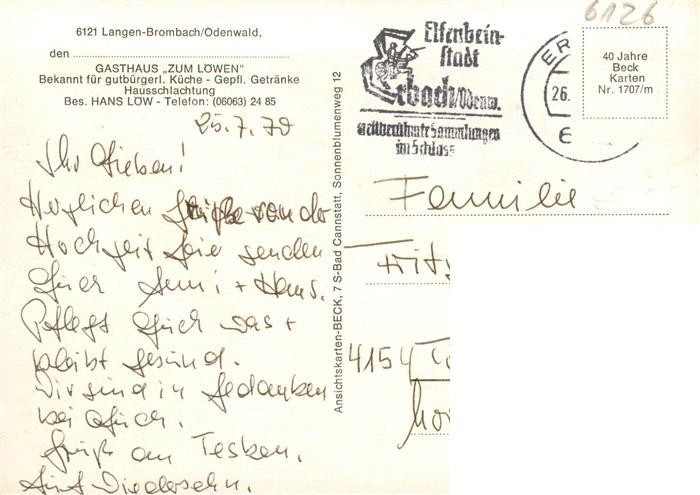 6121 Langen-Brombach/Odenwald,
den
GASTHAUS „ZUM LÖWEN"
Bekannt für gutbürgerl. Küche - Gepfl. Getränke
Hausschlachtung
Bes. HANS LÖW - Telefon: (06063) 24 85
25.7.79
Ihr Lieben!
Herzlichen Grüße von der
Hochzeitsfeier senden
Euer Anni + Hans.
Pflegt Euch was +
bleibt gesund.
Wir sind in Gedanken
bei Euch.
Gruß an Tesken.
Auf Wiedersehn.
Ansichtskarten-BECK, 7 S-Bad Cannstatt, Sonnenblumenweg 12
Elfenbein-
stadt
Erbach/Odenw.
weltberühmte Sammlungen
im Schloss
ER
26.
6
6126
40 Jahre
Beck
Karten
Nr. 1707/m
Familie
Fritz
4154